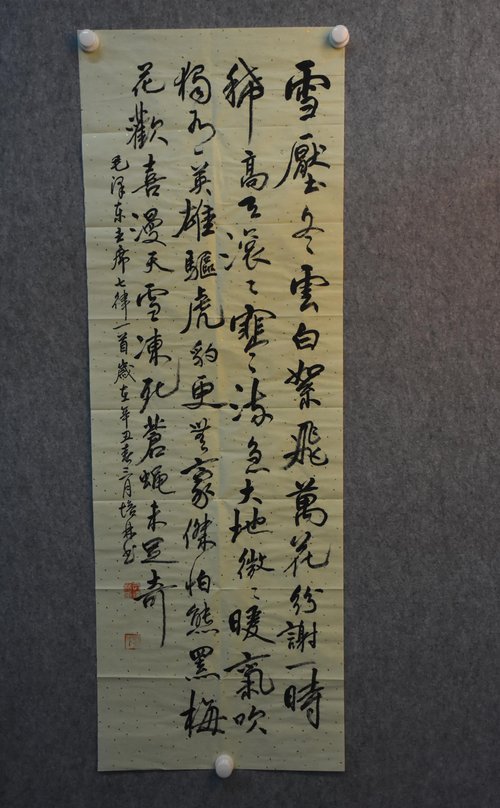 雪壓冬雲白絮飛萬花紛謝一時
稀高天滾〻寒流急大地微〻暖氣吹
獨有英雄驅虎豹更無豪傑怕熊黑梅
花歡喜漫天雪凍死蒼蝇未足奇
毛泽东主席七律一首歲在年丑春三月培林书